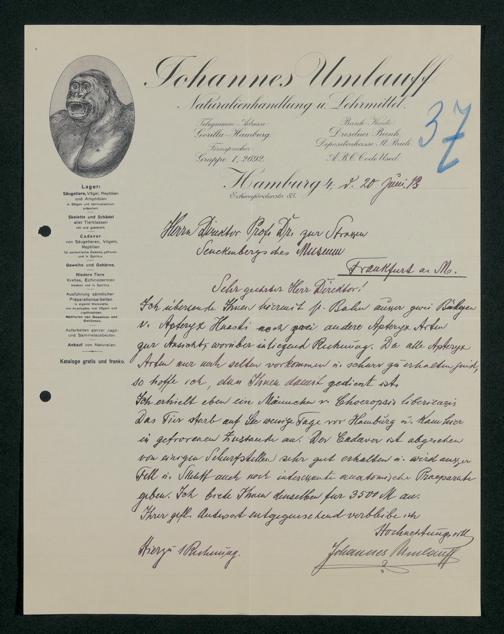 Johannes Umlauff
Naturalienhandlung u. Lehrmittel.
Telegramm-Adresse:
Gorilla-Hamburg.
Fernsprecher:
Gruppe 1, 2692.
Bank-Konto:
Dresdner Bank,
Depositenkasse St. Pauli.
A B C Code Used.
37
Hamburg 4, d. 20 Juni 13
Lager:
Säugetiere, Vögel, Reptilien
und Amphibien
Skelette und Schädel
aller Tierklassen
Cadaver
von Säugetieren, Vögeln,
Reptilien
Geweihe und Gehörne.
Niedere Tiere
Krebse, Echinodermen
Ausführung sämtlicher
Präparationsarbeiten
Aufarbeiten ganzer Jagd-
und Sammelausbeuten
Ankauf von Naturalien.
Kataloge gratis und franko.
Herrn Direktor Prof. Dr. zur Strassen
Senckenbergisches Museum
Frankfurt a. M.
Sehr geehrter Herr Direktor!
Ich übersende Ihnen hiermit p. Bahn ausser zwei Bälgen
v. Apteryx Haasti noch zwei andere Apteryx Arten
zur Ansicht, worüber inliegend Rechnung. Da alle Apteryx
Arten nur noch selten vorkommen u. schwer zu erhalten sind,
so hoffe ich, dass Ihnen damit gedient ist.
Ich erhielt eben ein Männchen v. Choeropsis liberiensis
Das Tier starb auf See wenige Tage vor Hamburg u. kam hier
in gefrorenen Zustande an. Der Cadaver ist abgesehen
von einigen Scheuerstellen sehr gut erhalten u. wird ausser
Fell u. Skelett auch noch interessante anatomische Praeparate
geben. Ich biete Ihnen denselben für 3500 M an.
Ihrer gefl. Antwort entgegensehend verbleibe ich
Hochachtungsvoll
Hierzu 1 Rechnung.
Johannes Umlauff